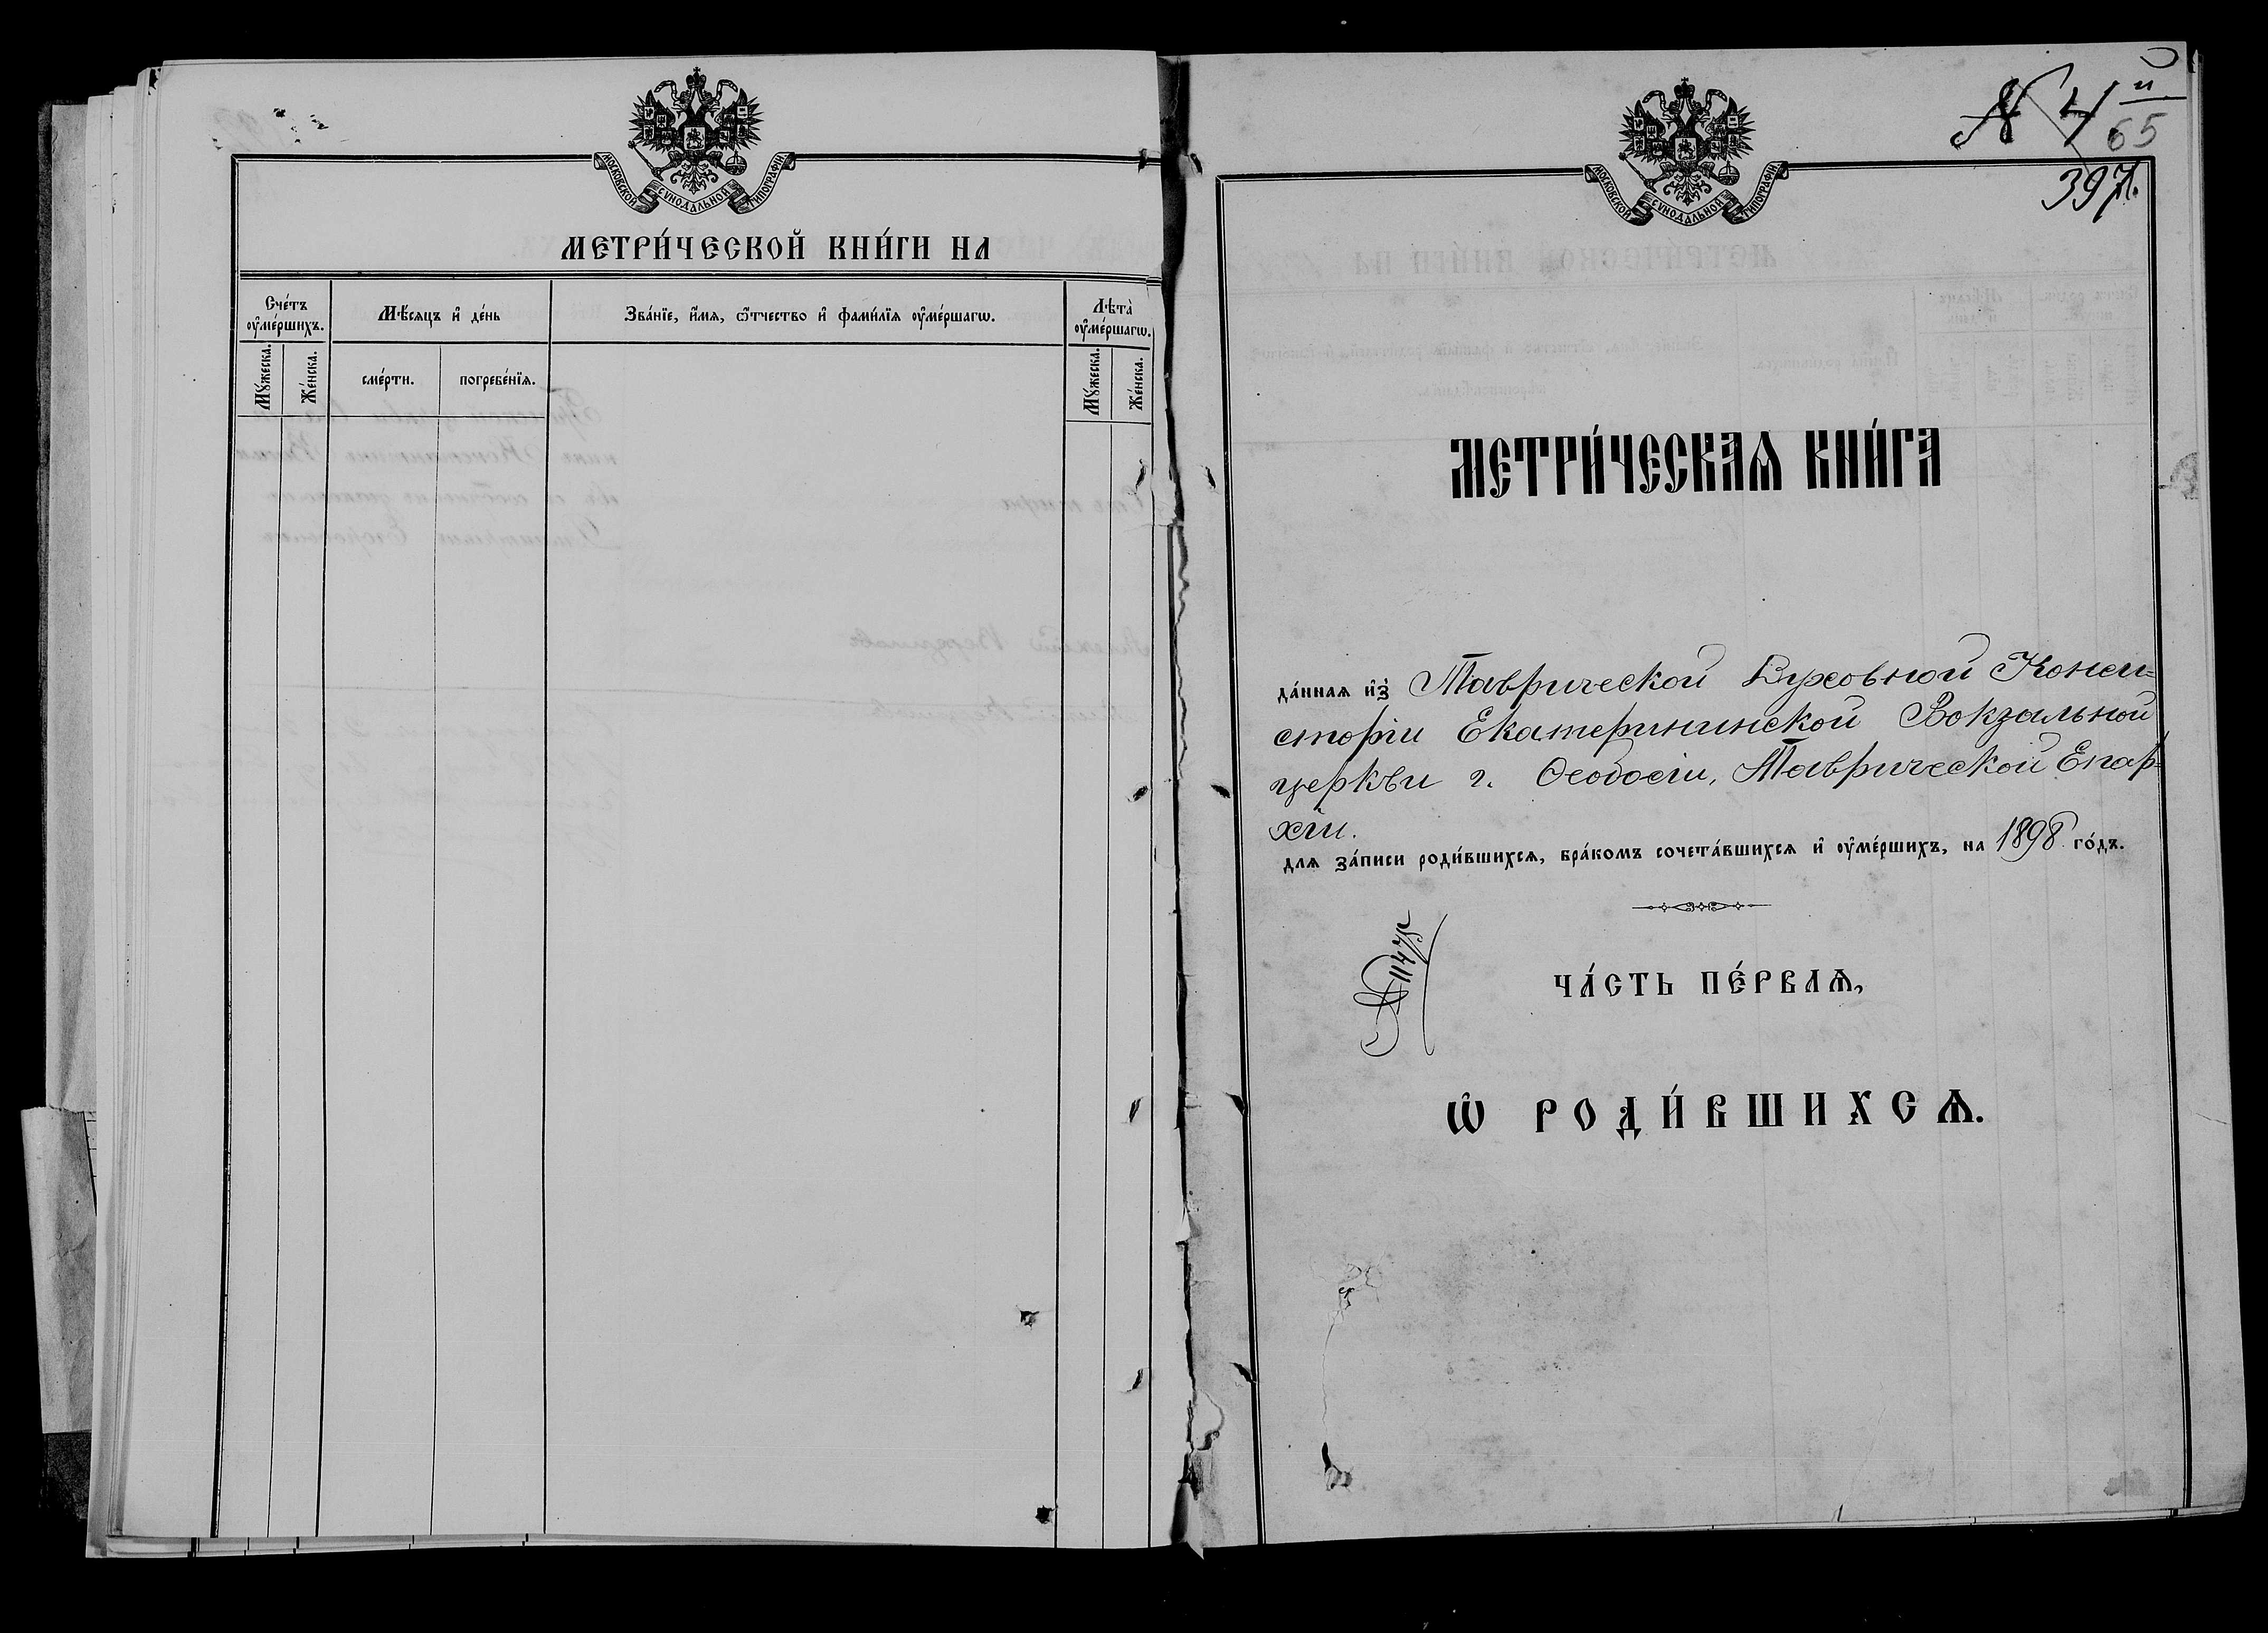 МОСКОВСКОЙ СѴНОДАЛЬНОЙ ТИПОГРАФІИ
МЕТРИ́ЧЕСКОЙ КНИ́ГИ НА
Сче́тъ ᲂу҆ме́ршихъ.
Мѣ́сяцъ и҆ де́нь
Зва́нїе, и҆́мѧ, ѻ҆́тчество и҆ фами́лїѧ ᲂу҆ме́ршагѡ.
Лѣта̀ ᲂу҆ме́ршагѡ.
Мꙋ́жеска.
Же́нска.
сме́рти.
погребе́нїѧ.
Мꙋ́жеска.
Же́нска.
№ 4й
65
397.
МОСКОВСКОЙ СѴНОДАЛЬНОЙ ТИПОГРАФІИ
МЕТРИ́ЧЕСКАѦ КНИ́ГА
да́ннаѧ и҆з̾ Таврической Духовной Конси-
сторіи Екатерининской Вокзальной
церкви г. Ѳеодосіи, Таврической Епар-
хіи.
длѧ за́писи роди́вшихсѧ, бра́комъ сочета́вшихсѧ и҆ ᲂу҆ме́ршихъ, на 1898 го́дъ.
ЧА́СТЬ ПЕ́РВАѦ,
Ѡ҆ РОДИ́ВШИХСѦ.